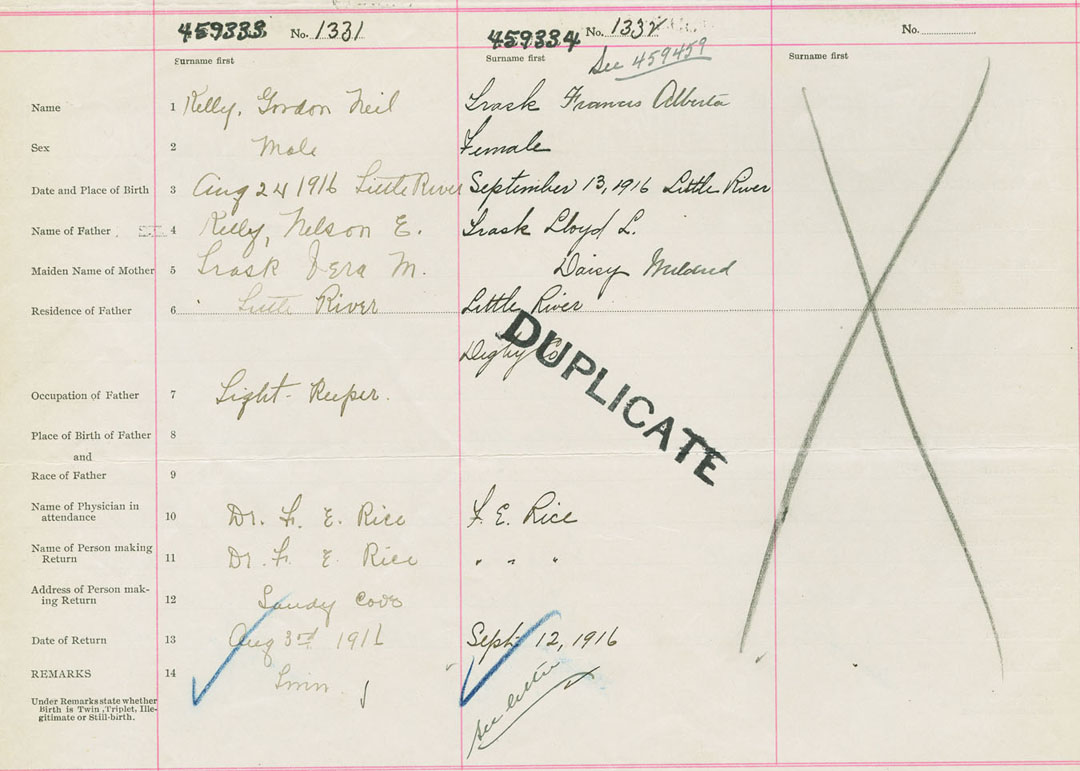 459333 No. 1331
459334 No. 1332
See 459459
No.
Surname first
Surname first
Surname first
Name 1 Kelly, Gordon Neil Trask Francis Alberta
Sex 2 Male Female
Date and Place of Birth 3 Aug 24 1916 Little River September 13, 1916 Little River
Name of Father 4 Kelly, Nelson E. Trask Lloyd L.
Maiden Name of Mother 5 Trask Vera M. Daisy Mildred
Residence of Father 6 Little River Little River
Digby Co
DUPLICATE
Occupation of Father 7 Light-Keeper.
Place of Birth of Father 8
and
Race of Father 9
Name of Physician in
attendance 10 Dr. F. E. Rice F. E. Rice
Name of Person making
Return 11 Dr. F. E. Rice " " "
Address of Person mak-
ing Return 12 Sandy Cove
Date of Return 13 Aug 3rd 1916 Sept 12, 1916
REMARKS 14 Twin
See letter
Under Remarks state whether
Birth is Twin, Triplet, Ille-
gitimate or Still-birth.